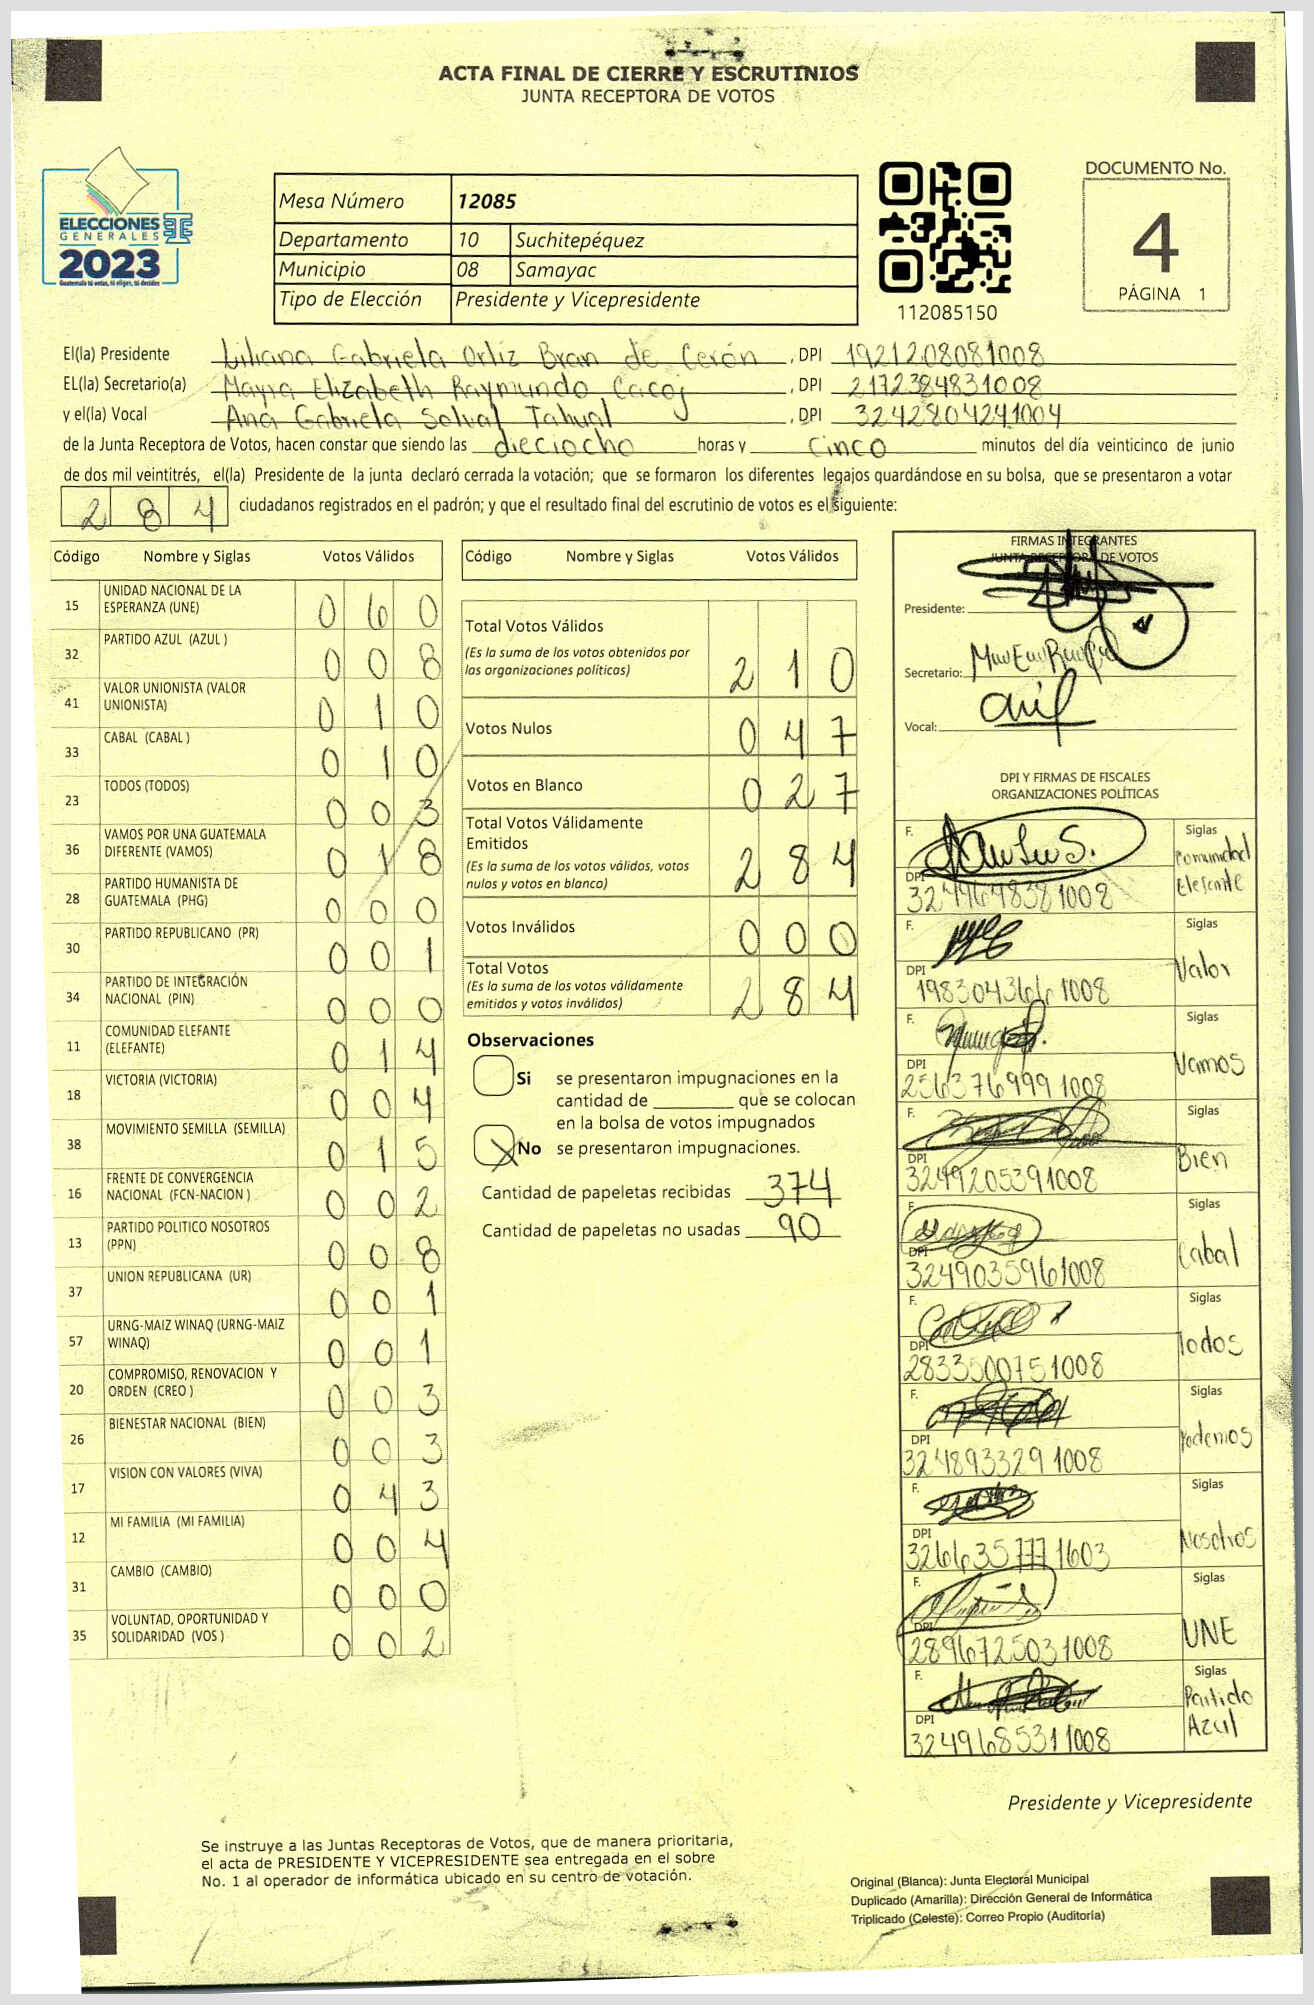 ACTA FINAL DE CIERRE Y ESCRUTINIOS
JUNTA RECEPTORA DE VOTOS
ELECCIONES
GENERALES
2023
Guatemala tú votas, tú eliges, tú decides
Mesa Número 12085
Departamento 10 Suchitepéquez
Municipio 08 Samayac
Tipo de Elección Presidente y Vicepresidente
112085150
DOCUMENTO No.
4
PÁGINA 1
El(la) Presidente Liliana Gabriela Ortiz Bran de Cerón , DPI 1921208081008
EL(la) Secretario(a) Mayra Elizabeth Raymundo Cacoj , DPI 2172384831008
y el(la) Vocal Ana Gabriela Solval Tahual , DPI 3242804241004
de la Junta Receptora de Votos, hacen constar que siendo las dieciocho horas y cinco minutos del día veinticinco de junio
de dos mil veintitrés, el(la) Presidente de la junta declaró cerrada la votación; que se formaron los diferentes legajos guardándose en su bolsa, que se presentaron a votar
284 ciudadanos registrados en el padrón; y que el resultado final del escrutinio de votos es el siguiente:
Código Nombre y Siglas Votos Válidos
15 UNIDAD NACIONAL DE LA
ESPERANZA (UNE) 060
32 PARTIDO AZUL (AZUL ) 008
41 VALOR UNIONISTA (VALOR
UNIONISTA) 010
33 CABAL (CABAL ) 010
23 TODOS (TODOS) 003
36 VAMOS POR UNA GUATEMALA
DIFERENTE (VAMOS) 018
28 PARTIDO HUMANISTA DE
GUATEMALA (PHG) 000
30 PARTIDO REPUBLICANO (PR) 001
34 PARTIDO DE INTEGRACIÓN
NACIONAL (PIN) 000
11 COMUNIDAD ELEFANTE
(ELEFANTE) 014
18 VICTORIA (VICTORIA) 004
38 MOVIMIENTO SEMILLA (SEMILLA) 015
16 FRENTE DE CONVERGENCIA
NACIONAL (FCN-NACION ) 002
13 PARTIDO POLITICO NOSOTROS
(PPN) 008
37 UNION REPUBLICANA (UR) 001
57 URNG-MAIZ WINAQ (URNG-MAIZ
WINAQ) 001
20 COMPROMISO, RENOVACION Y
ORDEN (CREO ) 003
26 BIENESTAR NACIONAL (BIEN) 003
17 VISION CON VALORES (VIVA) 043
12 MI FAMILIA (MI FAMILIA) 004
31 CAMBIO (CAMBIO) 000
35 VOLUNTAD, OPORTUNIDAD Y
SOLIDARIDAD (VOS ) 002
Código Nombre y Siglas Votos Válidos
Total Votos Válidos
(Es la suma de los votos obtenidos por
las organizaciones políticas) 210
Votos Nulos 047
Votos en Blanco 027
Total Votos Válidamente
Emitidos
(Es la suma de los votos válidos, votos
nulos y votos en blanco) 284
Votos Inválidos 000
Total Votos
(Es la suma de los votos válidamente
emitidos y votos inválidos) 284
Observaciones
Si se presentaron impugnaciones en la
cantidad de ________ que se colocan
en la bolsa de votos impugnados
X No se presentaron impugnaciones.
Cantidad de papeletas recibidas 374
Cantidad de papeletas no usadas 90
FIRMAS INTEGRANTES
JUNTA RECEPTORA DE VOTOS
Presidente:
Secretario:
Vocal:
DPI Y FIRMAS DE FISCALES
ORGANIZACIONES POLÍTICAS
F. Siglas
Comunidad
Elefante
DPI 3249648381008
F. Siglas
Valor
DPI 1983043661008
F. Siglas
Vamos
DPI 2563769991008
F. Siglas
Bien
DPI 3249205391008
F. Siglas
Cabal
DPI 3249035961008
F. Siglas
Todos
DPI 2833500751008
F. Siglas
Podemos
DPI 3248933291008
F. Siglas
Nosotros
DPI 3266357771603
F. Siglas
UNE
DPI 2896725031008
F. Siglas
Partido
Azul
DPI 3249685311008
Presidente y Vicepresidente
Se instruye a las Juntas Receptoras de Votos, que de manera prioritaria,
el acta de PRESIDENTE Y VICEPRESIDENTE sea entregada en el sobre
No. 1 al operador de informática ubicado en su centro de votación.
Original (Blanca): Junta Electoral Municipal
Duplicado (Amarilla): Dirección General de Informática
Triplicado (Celeste): Correo Propio (Auditoría)